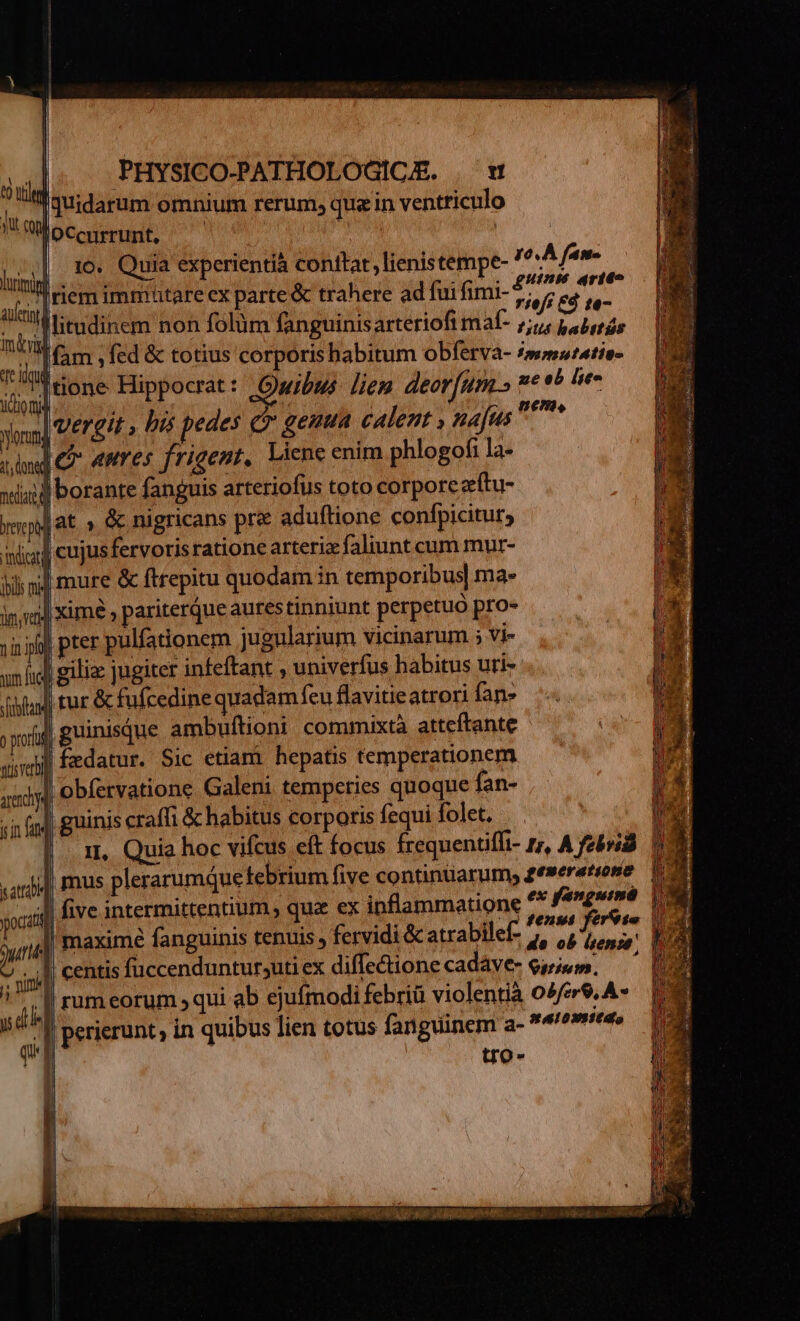 PHYSICO-PATHOLOGICÆ. 11
quidarum omnium rerum, quæ in ventriculo
occurrunt.
10. Quia experientiâ conſtat, lienis tempe-
riem immutare ex parte & trahere ad ſui ſimi-
litudinem non ſolùm ſanguinis arterioſi maſ-
ſam, ſed & totius corporis habitum obſerva-
tione Hippocrat: Quibus lien deorſum
vergit, his pedes & genua calent, naſus
& aures frigent. Liene enim phlogoſi la-
borante ſanguis arterioſus toto corpore æſtu-
at, & nigricans præ aduſtione conſpicitur,
cujus fervoris ratione arteriæ ſaliunt cum mur-
mure & ſtrepitu quodam in temporibus ma-
ximè, pariterque aures tinniunt perpetuò pro-
pter pulſationem jugularium vicinarum; vi-
giliæ jugiter infeſtant, univerſus habitus uri-
tur & fuſcedine quadam ſeu flavitie atrori ſan-
guinisque ambuſtioni commixtâ atteſtante
fædatur. Sic etiam hepatis temperationem
obſervatione Galeni temperies quoque ſan-
guinis craſſi & habitus corporis ſequi ſolet.
11. Quia hoc viſcus eſt focus frequentiſſi-
mus plerarumque febrium ſive continuarum,
ſive intermittentium, quæ ex inflammatione
maximè ſanguinis tenuis, fervidi & atrabileſ-
centis ſuccenduntur, uti ex diſſectione cadave-
rum eorum, qui ab ejuſmodi febriũ violentiâ
perierunt, in quibus lien totus ſanguinem a-
tro-
10. A ſan-
guinis arte-
rioſi & to-
tius habitûs
immutatio-
ne ob lie-
nem.
11. A febriũ
generatione
ex ſanguine
tenui fervi-
de ob lienis
Obſerv. A-
natomica.